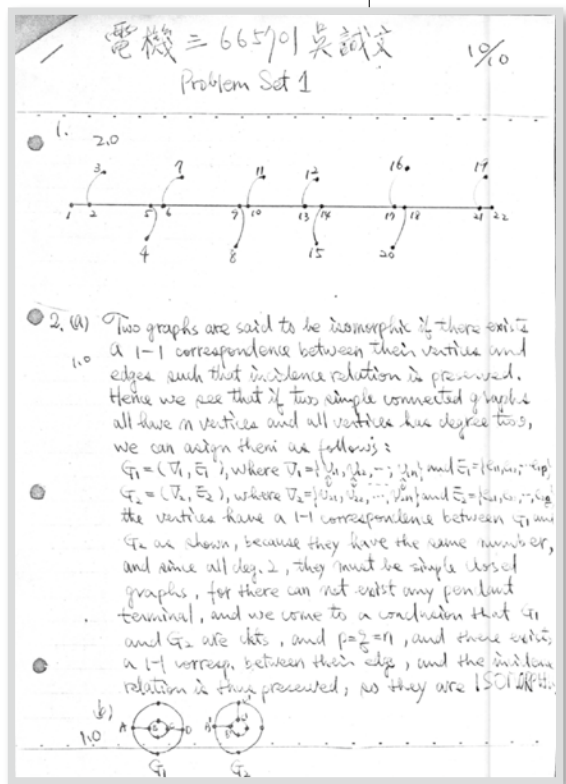 電機三 665701 吳誠文
10/10
Problem Set 1
1.
2.0
3 7 11 12 16 19
1 2 5 6 9 10 13 14 18 21 22
4 8 15 20
2. (a) Two graphs are said to be isomorphic if there exists
1.0
a 1-1 correspondence between their vertices and
edges such that incidence relation is preserved.
Hence we see that if two simple connected graphs
all have n vertices and all vertices has degree two,
we can asign them as follows:
G1 = (V1, E1), where V1 = and E1 =
G2 = (V2, E2), where V2 = and E2 =
the vertices have a 1-1 correspondence between G1 and
G2 as shown, because they have the same number,
and since all deg. 2, they must be simple closed
graphs, for there can not exist any pendant
terminal, and we come to a conclusion that G1
and G2 are ckts, and p = q = n, and there exists
a 1-1 corresp. between their edge, and the incidence
relation is thus preserved, so they are
(b)
1.0
A D B
G1 G2